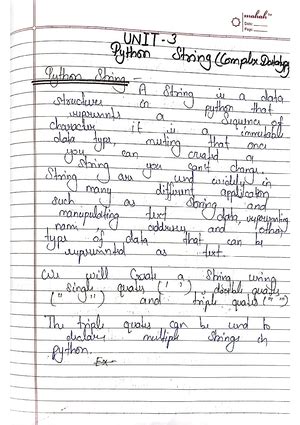 mahak
Date:
Page:
UNIT-3
Python String (Complex Datatype)
Python String -
A String is a data
structures in python that
represents a sequence of
character. it is a immutable
data type, meaning that once
you can created a
string you can't change.
String are used widely in
many different application,
such as storing and
manupulating text data, representing
name, address, and other
type of data that can be
represented as text.
We will Create a String using
single quotes (' '), double quotes
(" ") and triple quotes (""" """)
The triple quotes can be used to
declare multiple strings in
python.
Ex-